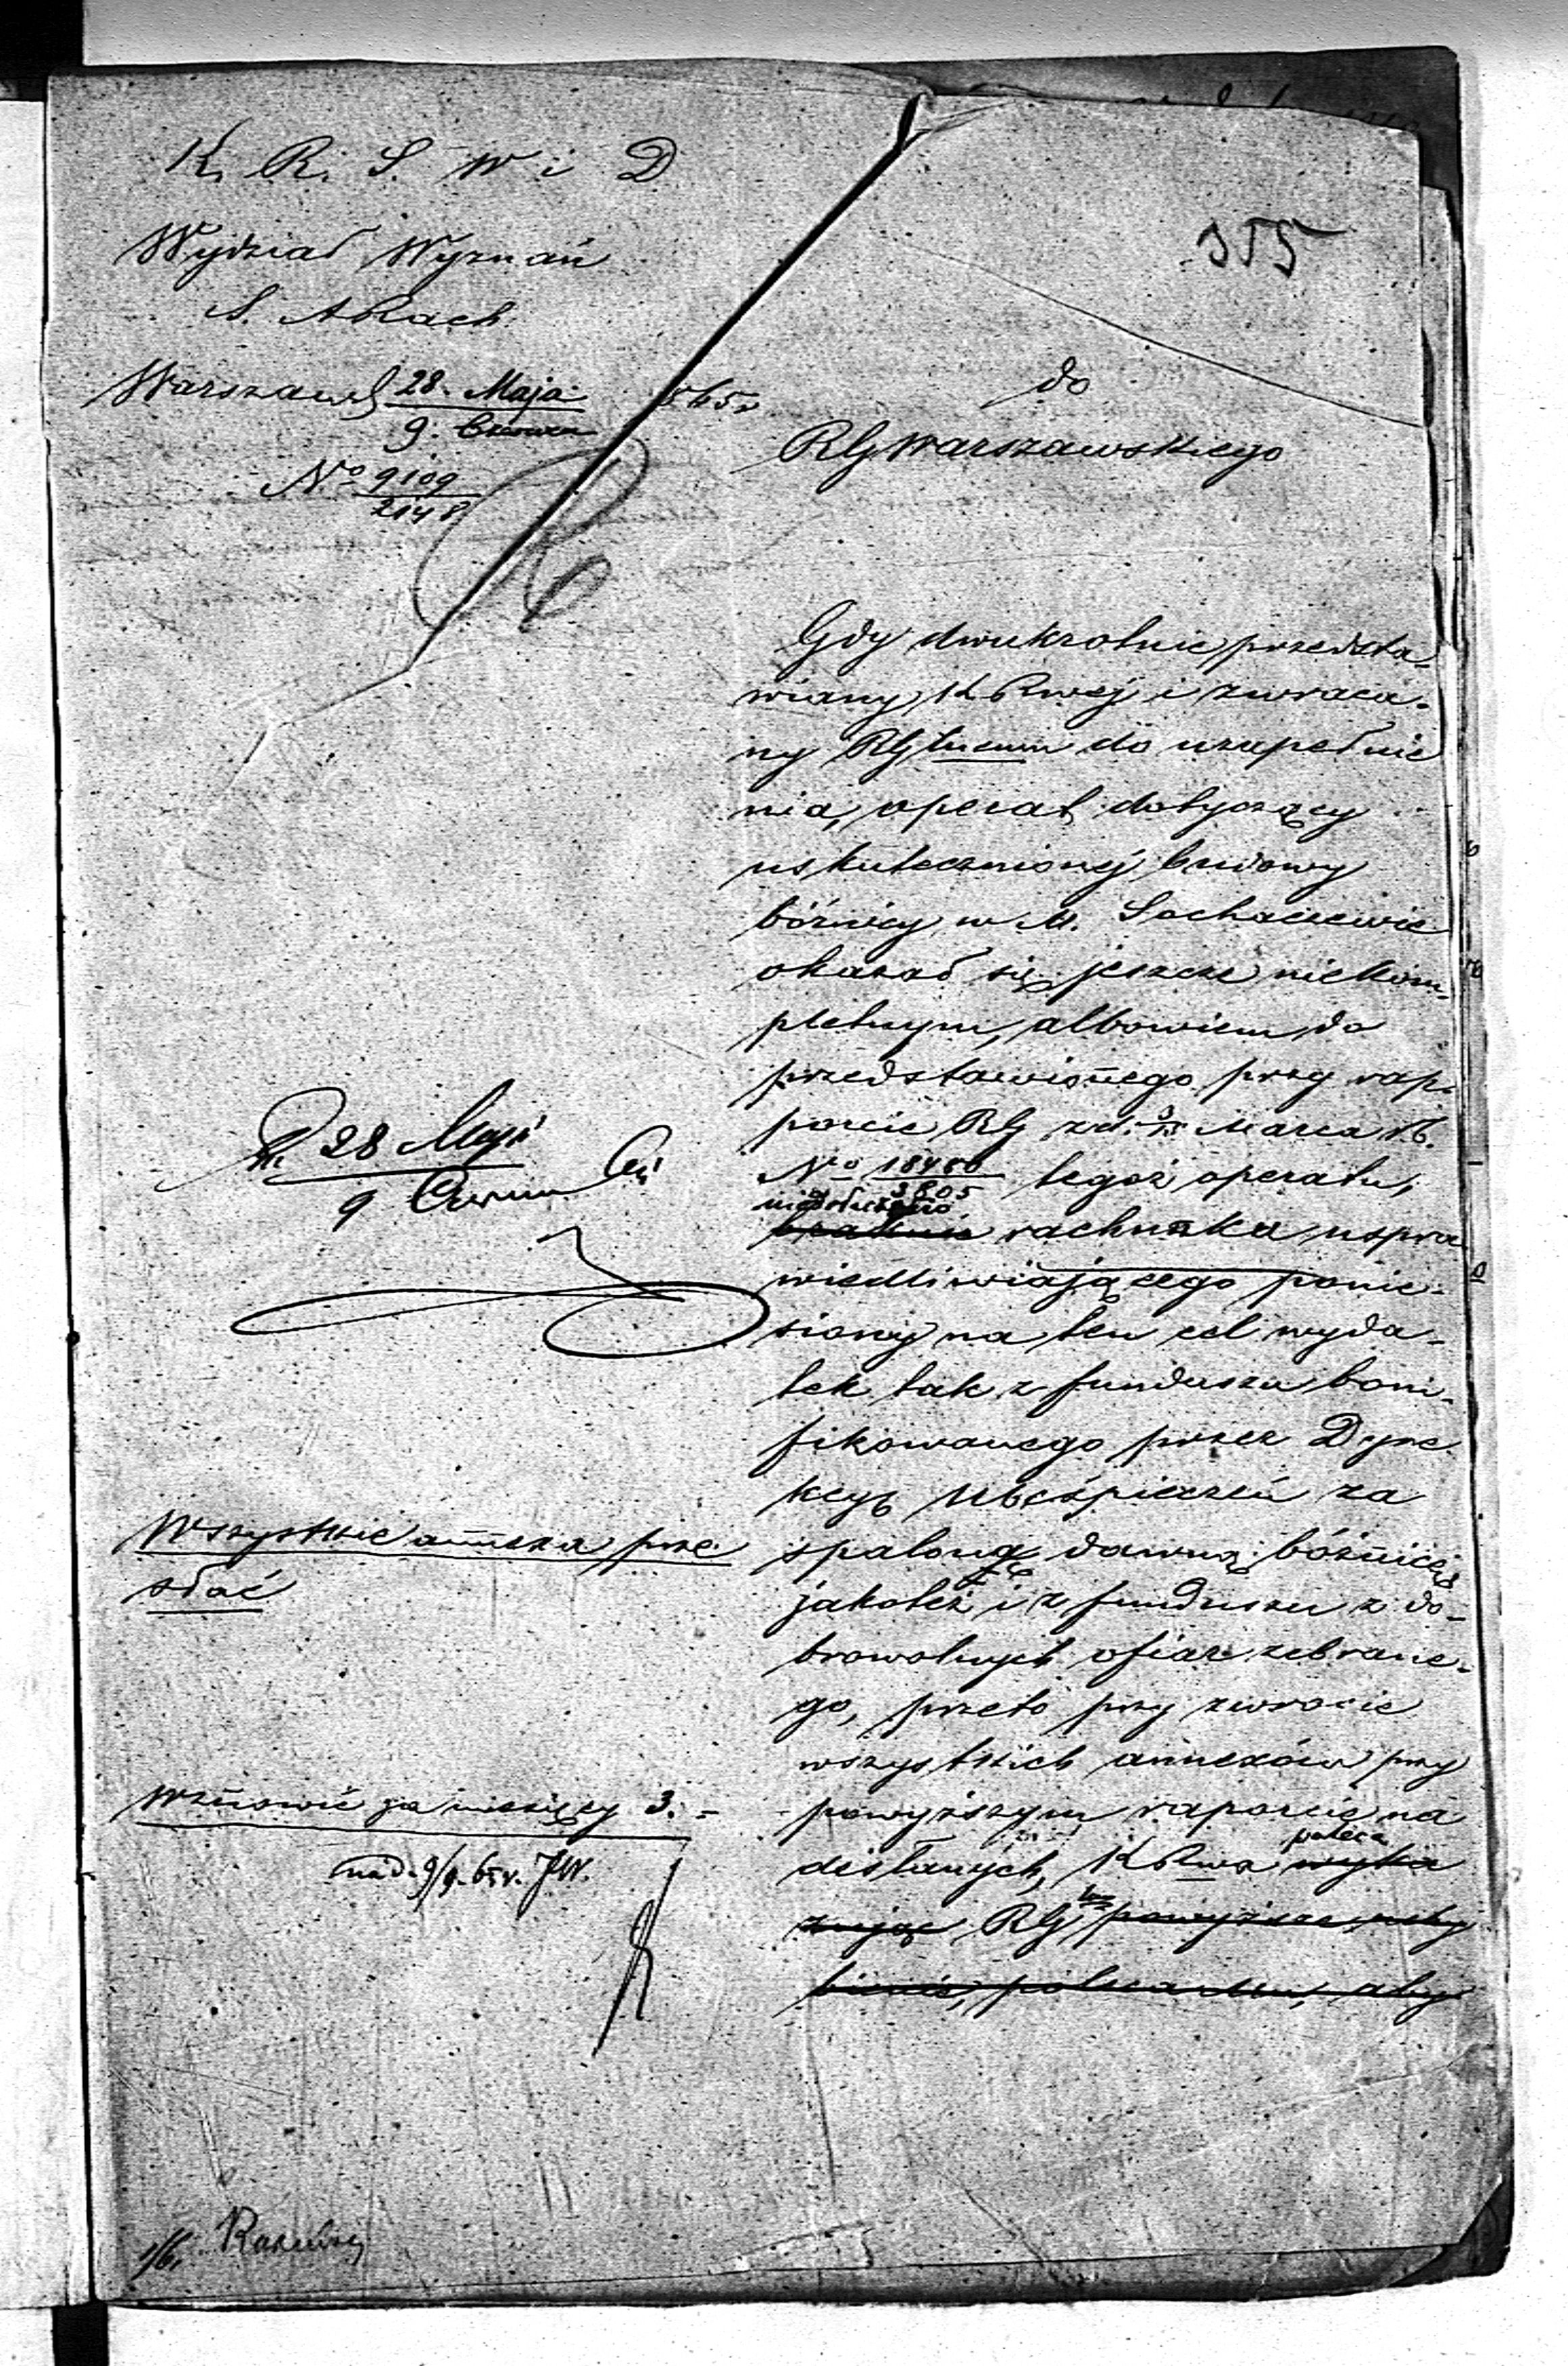 K. R. S. W i D
Wydział Wyznań
S. ARach
Warszawa 28. Maja 865 r
9. Czerwca
No 9109
2148
355
do
RG Warszawskiego
Gdy dwukrotnie przedsta-
wiany KRwej i zwraca-
ny RGtucum do uzupełnie
nia, operat dotyczący
uskutecznionej budowy
bóżnicy w M. Sochaczewie
okazał się jeszcze niekom-
pletnym, albowiem do
przedstawionego przy rap-
porcie RG z d. Marca rb.
No 18486
3805 tegoż operatu,
niedołączono
brakuie rachunku uspra
wiedliwiającego ponie-
siony na ten cel wyda-
tek tak z funduszu boni-
fikowanego przez Dyre
kcyę Ubeśpieczeń za
spaloną dawną bóżnicę
jakoteż i z funduszu z do-
browolnych ofiar zebrane-
go, przeto przy zwrocie
wszystkich annexów przy
powyższym raporcie na
desłanych, KRwa poleca wyka
zując RG powyższe uchy
bienie, poleca Mu, aby
28 Maja
9 Czerwca
Wszystkie annexa prze
słać
Wznowić za miesięcy 3. -
nad. 9/9. 65 r. JW.